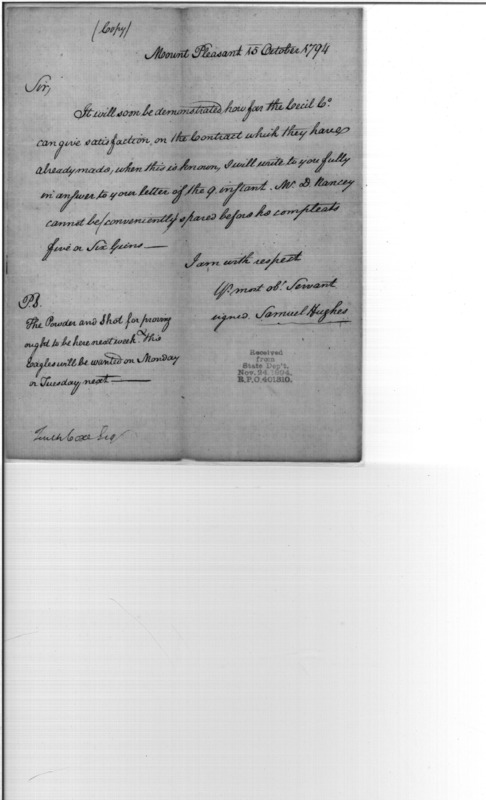 (Copy)
Mount Pleasant 15 October 1794
Sir,
It will soon be demonstrated how far the Cecil Co.
can give satisfaction, on the Contract which they have
already made, when this is known, I will write to you fully
in answer to your letter of the 9 instant. Mr. D. Nancey
cannot be (conveniently) spared before he compleats
five or Six Guns —
I am with respect
Yr. most ob. Servant
signed Samuel Hughes
PS.
The Powder and Shot for proving
ought to be here next week. This
Eagles will be wanted on Monday
or Tuesday next —
Received
from
State Dep't.
Nov. 24. 1894.
R.P.O. 401810.
Tench Coxe Esq